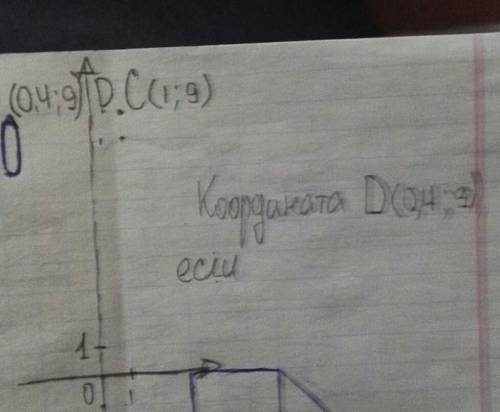 (0,4;9) D. C(1;9)
Координата D(0,4;9)
если
1
0 1